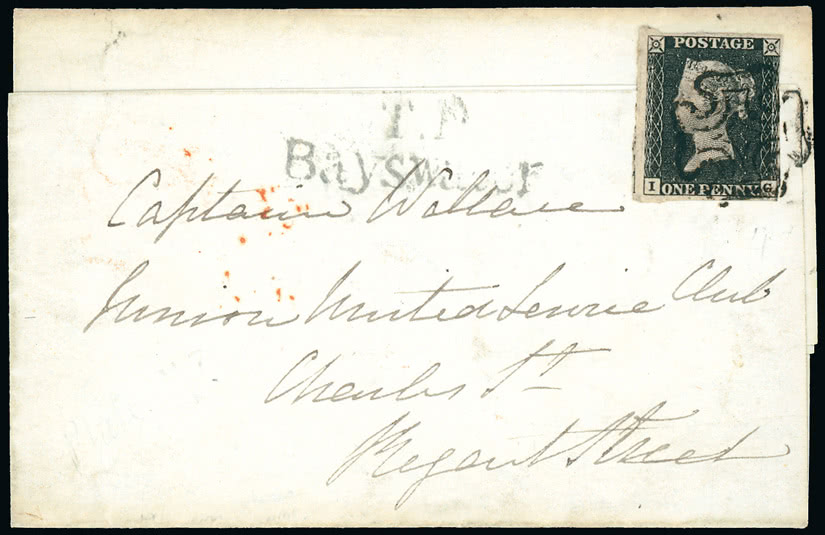 POSTAGE
I ONE PENNY G
T.P
Bayswater
Captain Wallace
Junior United Service Club
Charles St
Regent Street